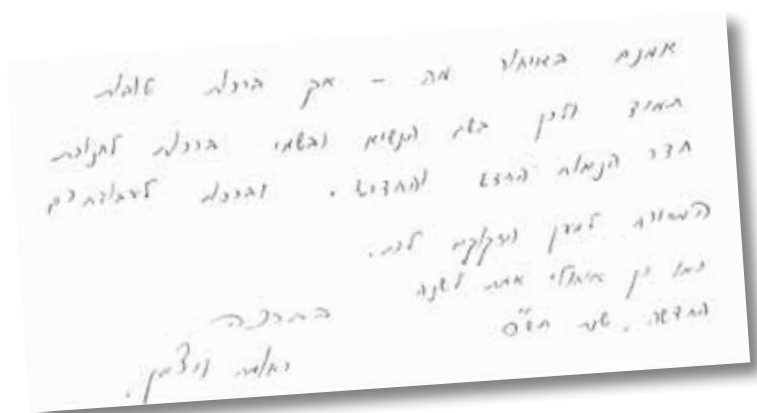 אמנם באיחור מה – אך ברכות טובות
תמיד ולכן בשם הנשיא ובשמי ברכות לחנוכת
חדר הנתוח החדש והחדיש. וברכות לעבודתכם
המסורה למען הזקוקים לכם.
כמו כן איחולי אמת לשנה
החדשה, שנת תש"ס
בברכה
ראומה ויצמן.